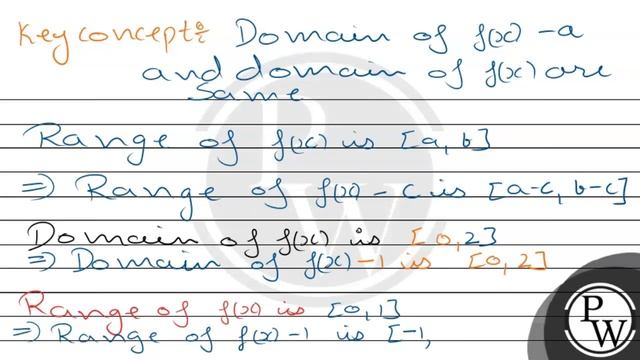 Key concept:- Domain of f(x) - a
and domain of f(x) are
same
Range of f(x) is [a, b]
=> Range of f(x) - c is [a-c, b-c]
Domain of f(x) is [0, 2]
=> Domain of f(x) - 1 is [0, 2]
Range of f(x) is [0, 1]
=> Range of f(x) - 1 is [-1,
PW
PW